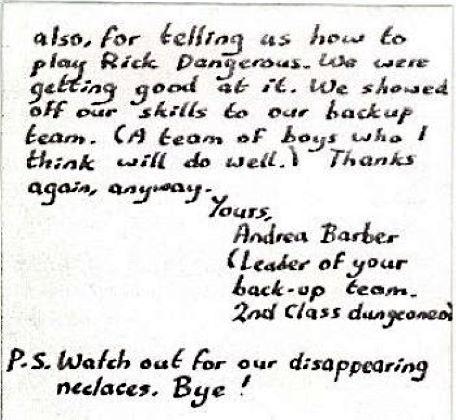 also, for telling us how to
play Rick Dangerous. We were
getting good at it. We showed
off our skills to our backup
team. (A team of boys who I
think will do well.) Thanks
again, anyway.
Yours,
Andrea Barber
(Leader of your
back-up team.
2nd Class dungeoneer)
P.S. Watch out for our disappearing
neclaces. Bye!